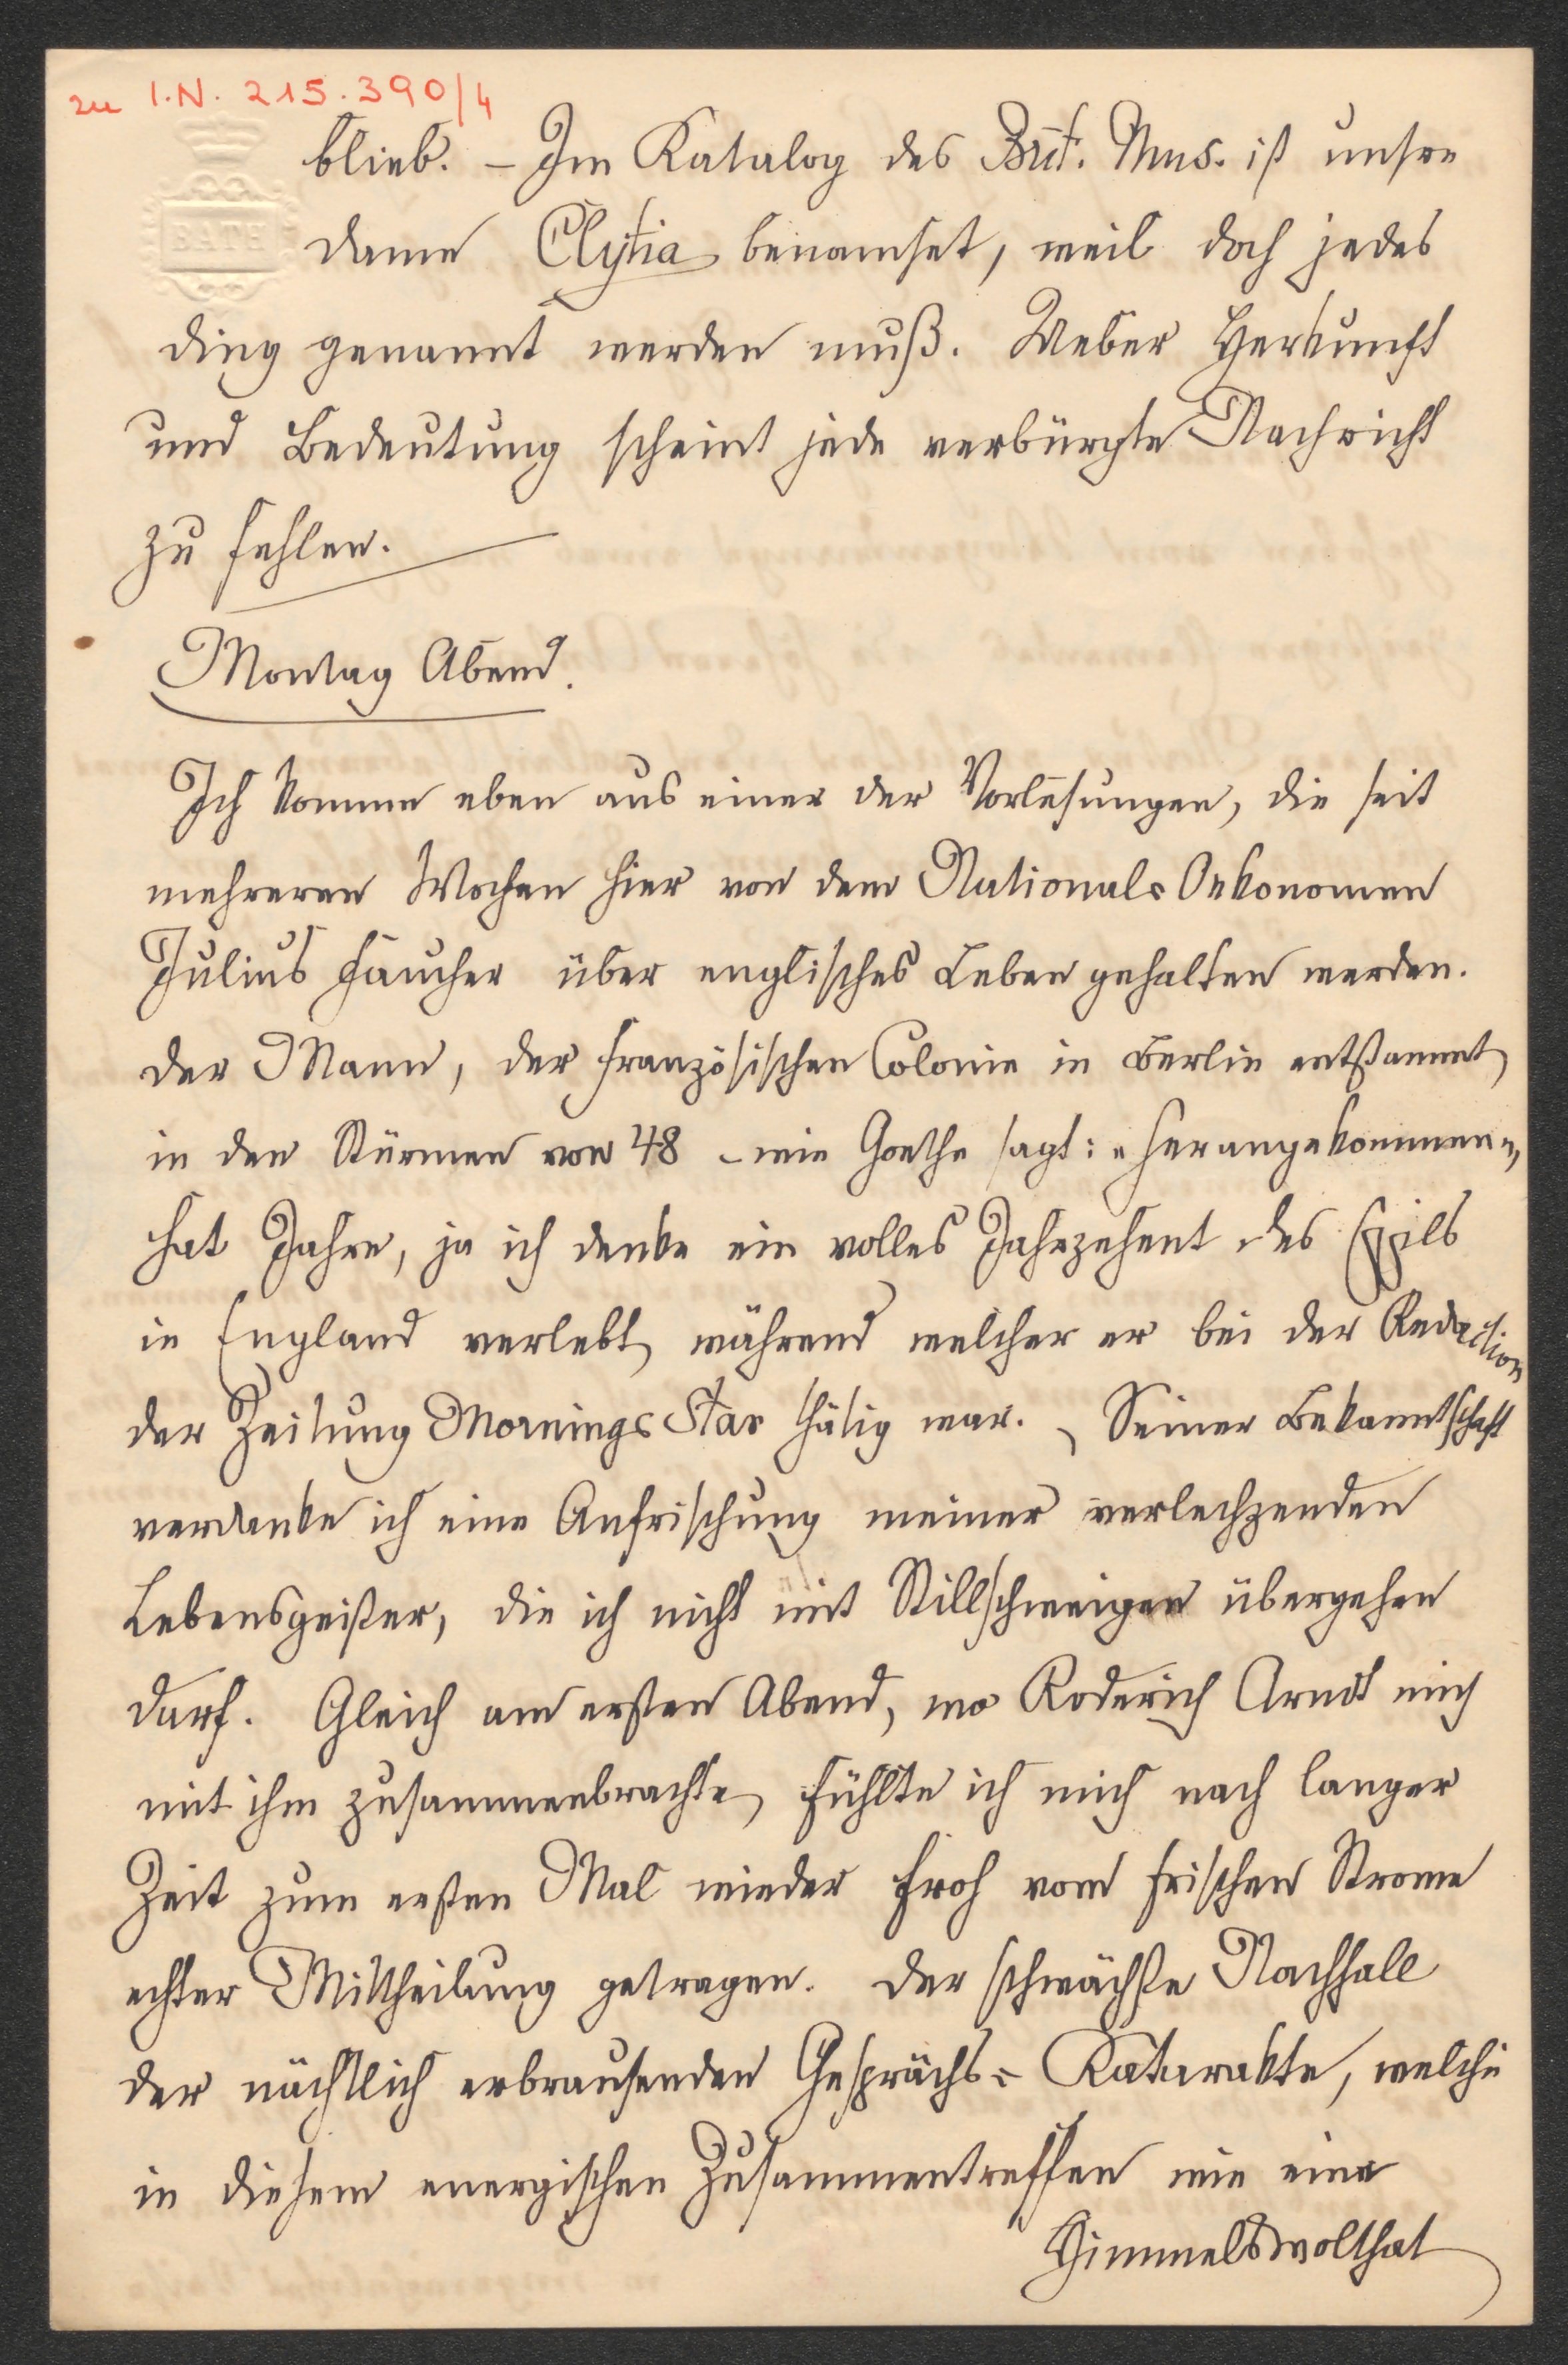 zu I.N. 215.390/4
BATH
blieb. – Im Katalog des Brit. Mus. ist unsre
Dame Clytia benamset, weil doch jedes
Ding genannt werden muß. Ueber Herkunft
und Bedeutung scheint jede verbürgte Nachricht
zu fehlen.
Montag Abend.
Ich komme eben aus einer der Vorlesungen, die seit
mehreren Wochen hier von dem National-Oekonomen
Julius Faucher über englisches Leben gehalten werden.
Der Mann, der französischen Colonie in Berlin entstammt,
in den Stürmen von 48 – wie Goethe sagt: „herangekommen“,
hat Jahre, ja ich denke ein volles Jahrzehent des Exils
in England verlebt, während welcher er bei der Redaction
der Zeitung Morning-Star thätig war. – Seiner Bekanntschaft
verdanke ich eine Anfrischung meiner verlechzenden
Lebensgeister, die ich nicht mit Stillschweigen übergehen
darf. Gleich am ersten Abend, wo Roderich Arndt mich
mit ihm zusammenbrachte, fühlte ich mich nach langer
Zeit zum ersten Mal wieder froh vom frischen Strome
echter Mittheilung getragen. Der schwächste Nachhall
der nächtlich erbrausenden Gesprächs-Katarakte, welche
in diesem energischen Zusammentreffen wie eine
Himmelswolthat